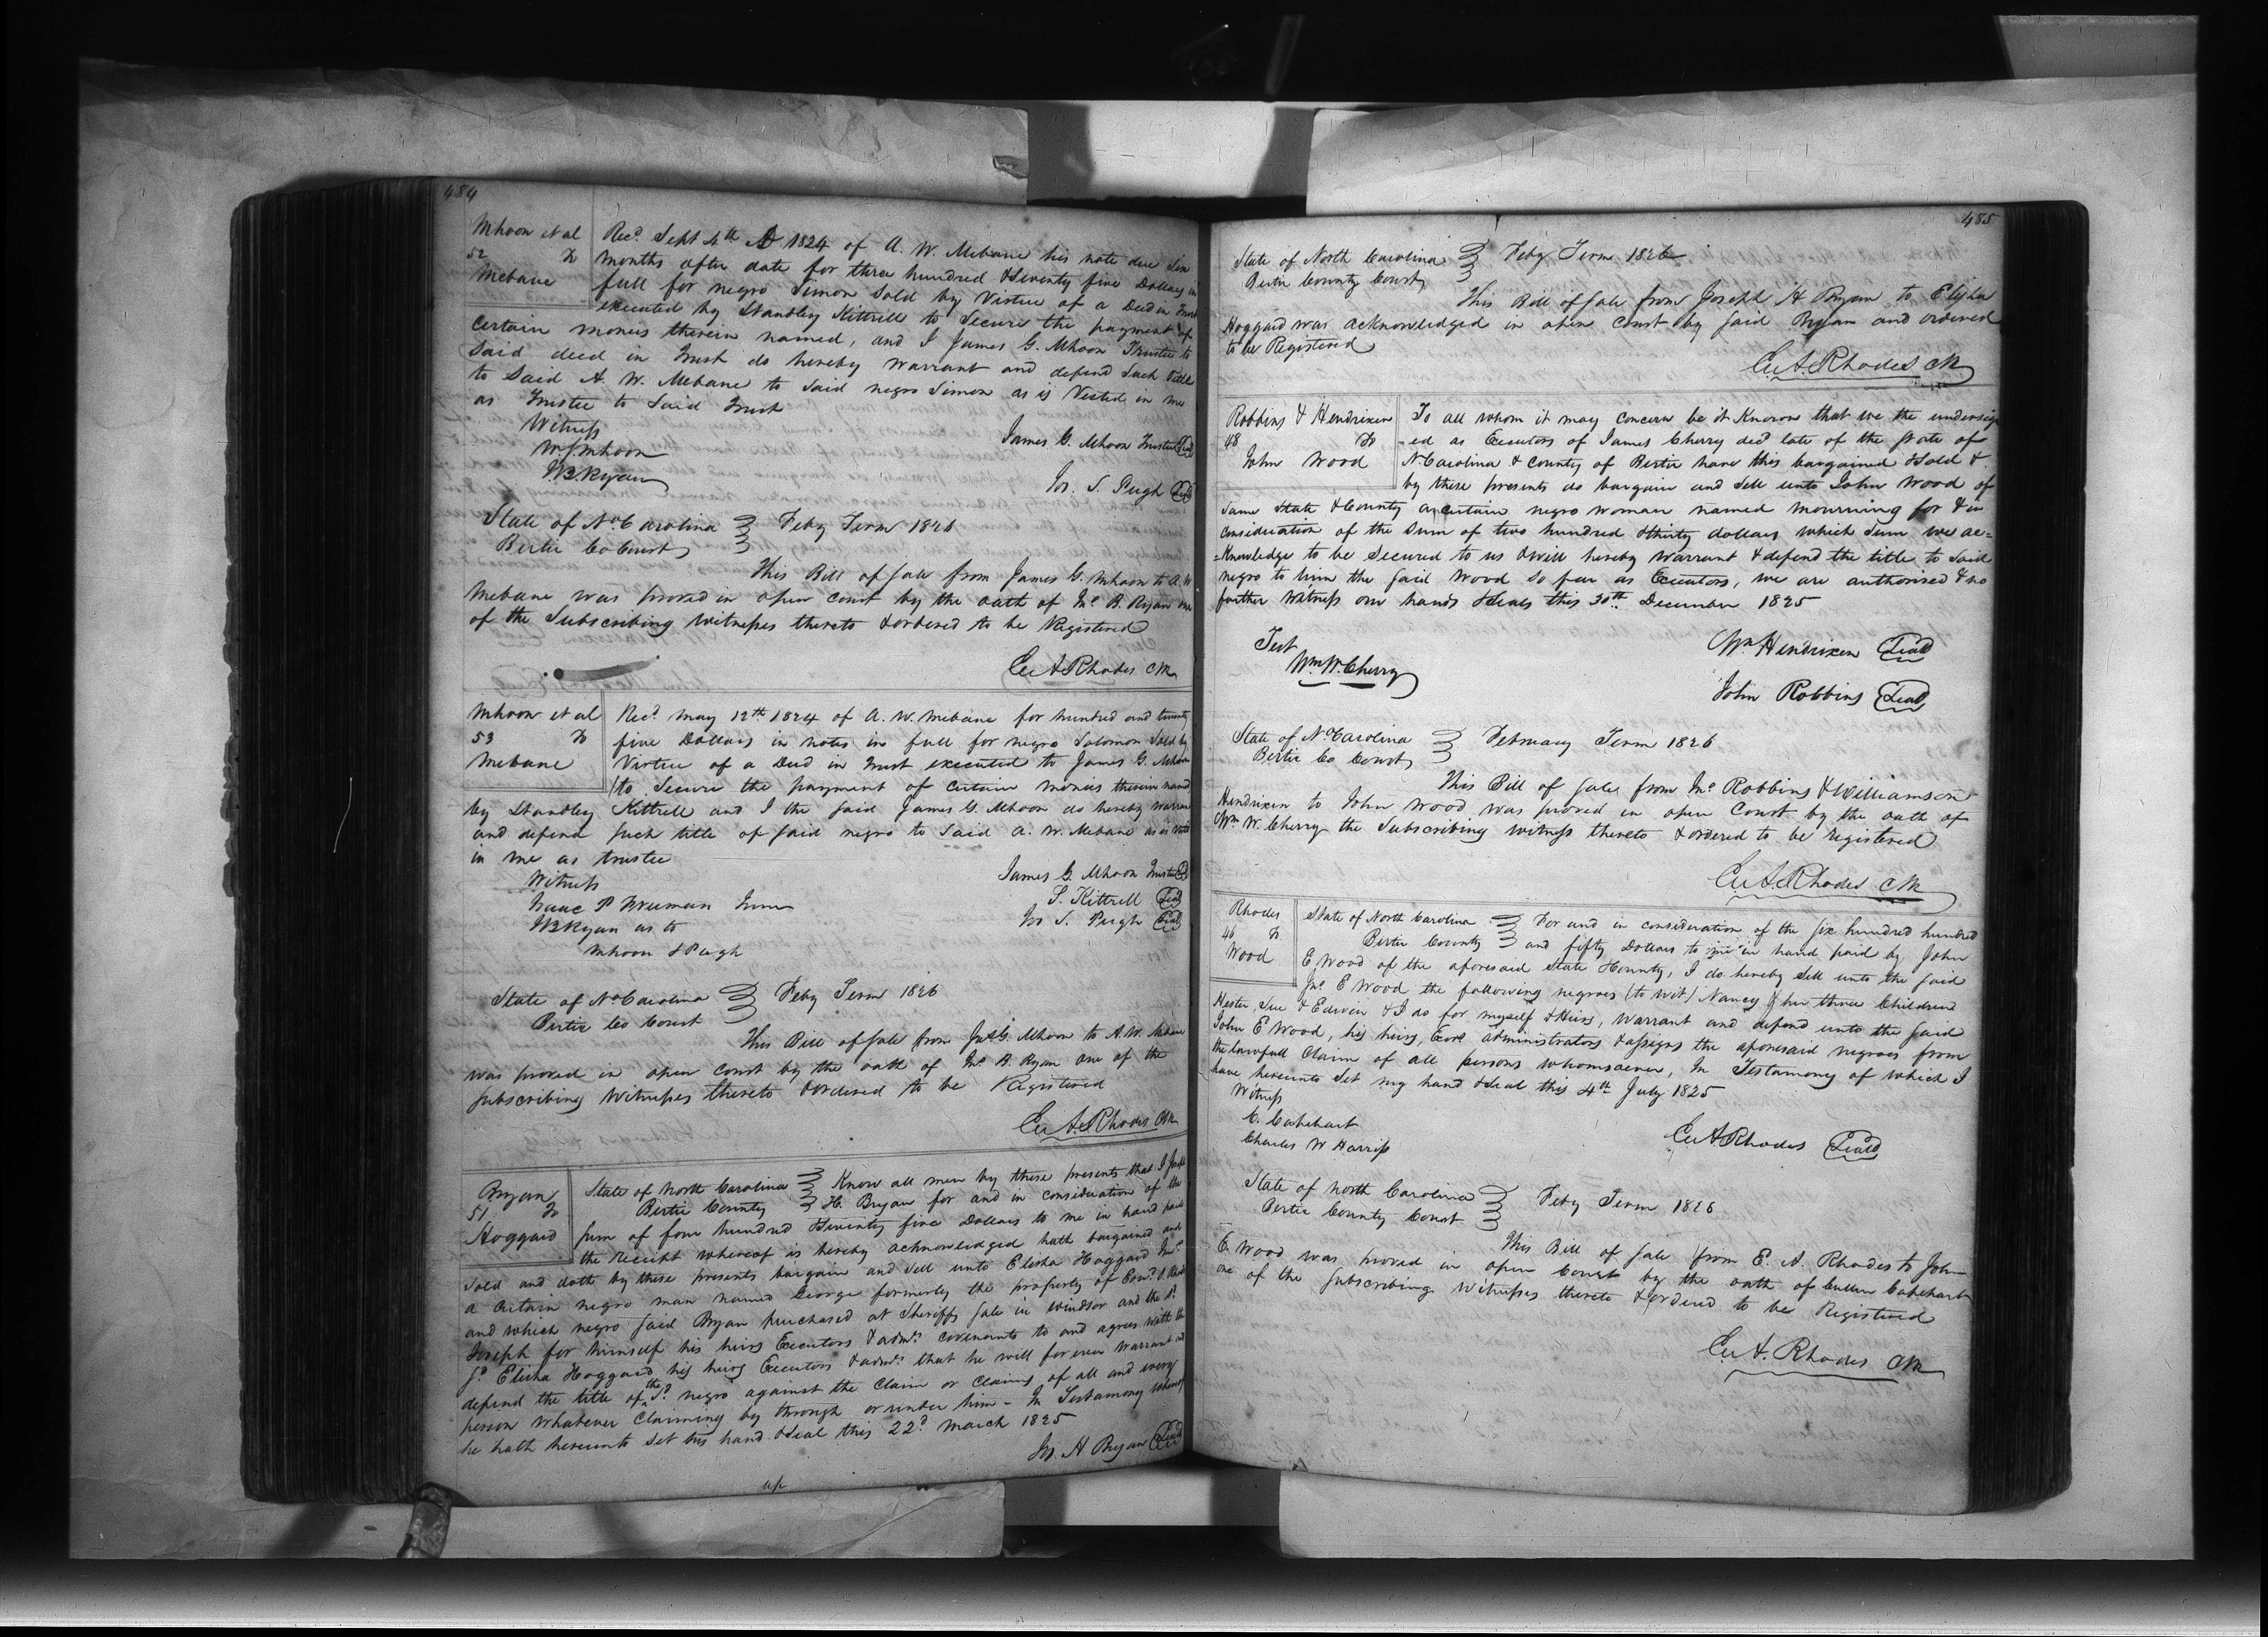 484
Mhoon et al
52 To
Mebane
Recd. Sept 4th AD 1824 of A. W. Mebane his note due Six
months after date for three hundred & Seventy five Dollars in
full for negro Simon Sold by Virtue of a Deed in Trust
executed by Standley Kittrell to Secure the payment of
Certain monies therein named, and I James G. Mhoon Trustee to
Said deed in Trust do hereby warrant and defend Such title
to Said A. W. Mebane to Said negro Simon as is Vested in me
as Trustee to Said Trust
Witness
W. S. Mhoon
J. B. Ryan
James G. Mhoon Trustee Seal
Jos. S. Pugh Seal
State of No Carolina
Bertie Co Court
Feby Term 1826
This Bill of Sale from James G. Mhoon to A. W
Mebane was proved in open court by the oath of Jno. B. Ryan one
of the Subscribing Witnesses thereto & ordered to be Registered
E. A. Rhodes Clk
Mhoon et al
53 To
Mebane
Recd. May 12th 1824 of A. W. Mebane for hundred and twenty
five Dollars in notes in full for negro Solomon Sold by
Virtue of a Deed in Trust executed to James G. Mhoon
to Secure the payment of Certain monies therein named
by Standley Kittrell and I the said James G. Mhoon do hereby warrant
and defend Such title of said negro to Said A. W. Mebane as is vested
in me as trustee
Witness
Isaac P Freeman
J B Ryan as to
Mhoon & Pugh
James G. Mhoon Trustee
S. Kittrell Seal
Jos S. Pugh Seal
State of No Carolina
Bertie Co Court
Feby Term 1826
This Bill of Sale from Jas G. Mhoon to A. W. Mebane
was proved in open court by the oath of Jno. B. Ryan one of the
Subscribing Witnesses thereto & ordered to be Registered
E. A. Rhodes Clk
Bryan
51 To
Hoggard
State of North Carolina
Bertie County
Know all men by these presents that I Joseph
H. Bryan for and in consideration of the
sum of four hundred & Seventy five Dollars to me in hand paid
the Receipt whereof is hereby acknowledged hath bargained and
Sold and doth by these presents bargain and Sell unto Elisha Hoggard
a certain negro man named George formerly the property of
and which negro Said Bryan purchased at Sheriffs Sale in Windsor and the sd.
Joseph for himself his heirs Executors & admrs. covenants to and agrees with the
sd. Elisha Hoggard his heirs Executors & admrs. that he will for ever Warrant and
defend the title of the sd. negro against the Claim or Claims of all and every
person whatever Claiming by through or under him - In Testamony whereof
he hath hereunto Set his hand & Seal this 22d. March 1825
Jos. H Bryan Seal
485
State of North Carolina
Bertie County Court
Feby Term 1826
This Bill of Sale from Joseph H Bryan to Elisha
Hoggard was acknowledged in open court by Said Bryan and ordered
to be Registered
E. A. Rhodes Clk
Robbins & Hendrixen
48 To
John Wood
To all whom it may concern be it Known that we the undersign
-ed as Executors of James Cherry decd. late of the State of
N Carolina & County of Bertie have this bargained & Sold &
by these presents do bargain and Sell unto John Wood of
Same State & County a certain negro woman named Mourning for & in
consideration of the Sum of two hundred & thirty dollars which Sum we ac=
=knowledge to be Secured to us & will hereby Warrant & defend the title to Said
negro to him the Said Wood So far as Executors, we are authorised & no
further Witness our hands & Seals this 30th. December 1825
Test
Wm. W. Cherry
Wm. Hendrixen Seal
John Robbins Seal
State of No Carolina
Bertie Co Court
February Term 1826
This Bill of Sale from Jno Robbins & Williamson
Hendrixen to John Wood was proved in open Court by the oath of
Wm. W. Cherry the Subscribing witness thereto & ordered to be registered
E. A. Rhodes Clk
Rhodes
46 To
Wood
State of North Carolina
Bertie County
For and in consideration of the Six hundred hundred
and fifty Dollars to me in hand paid by John
E Wood of the aforesaid State & County, I do hereby Sell unto the Said
Jno. E Wood the following negroes (to Wit) Nancy & her three Children
Hester, Sue & Edwin & I do for myself & Heirs, Warrant and defend unto the Said
John E Wood, his heirs, Exors Administrators & assigns the aforesaid negroes from
the lawfull Claim of all persons whomsoever, In Testamony of which I
have hereunto Set my hand & Seal this 4th July 1825
Witness
C. Capehart
Charles W Harriss
E. A. Rhodes Seal
State of North Carolina
Bertie County Court
Feby Term 1826
This Bill of Sale from E. A. Rhodes to John
E. Wood was proved in open Court by the oath of Cullen Capehart
one of the Subscribing Witnesses thereto & ordered to be Registered
E. A. Rhodes Clk